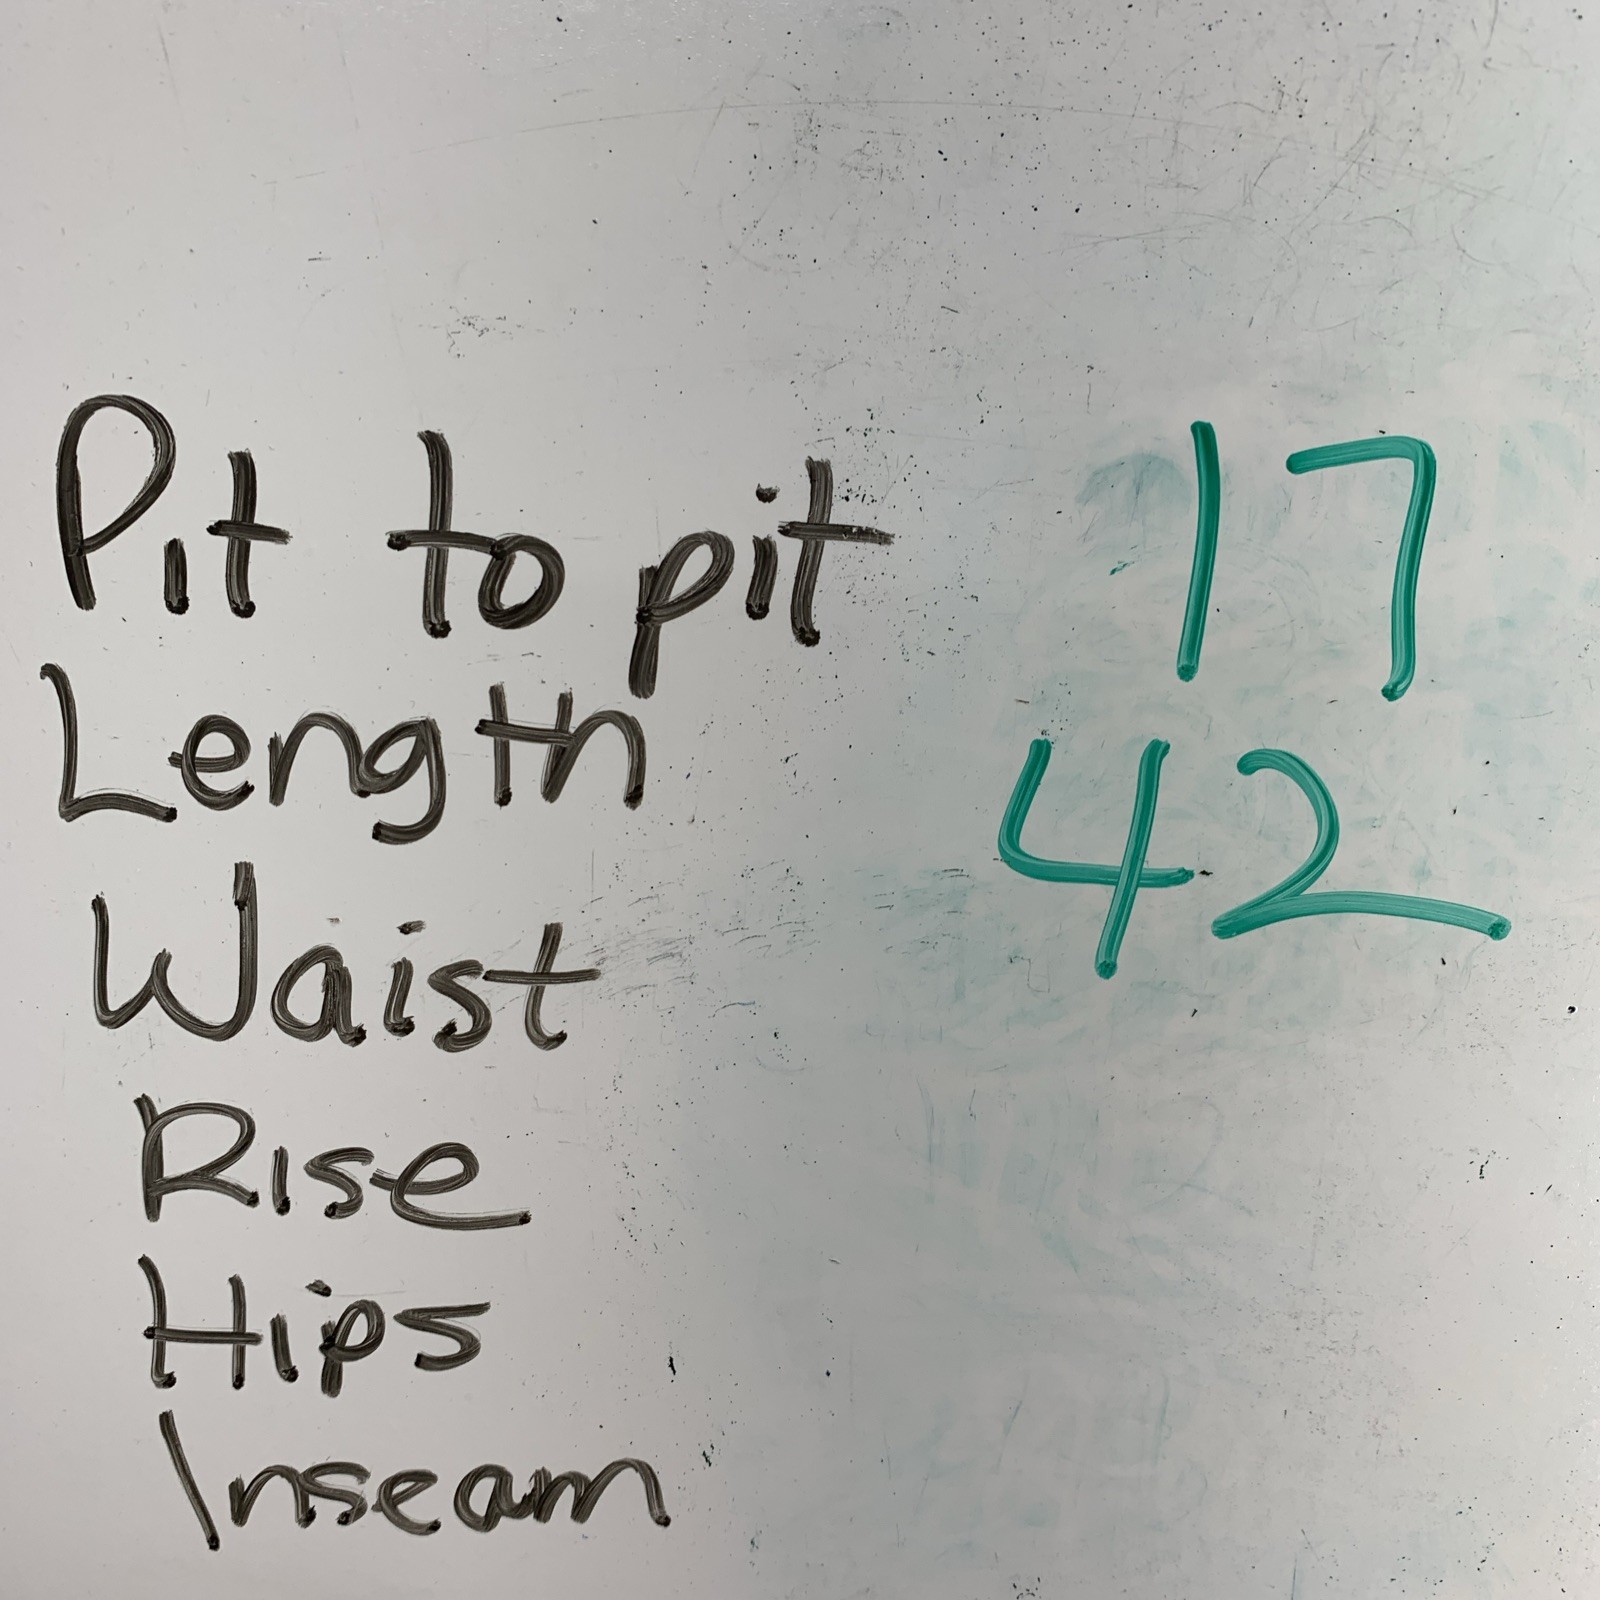 Pit to pit 17
Length 42
Waist
Rise
Hips
Inseam